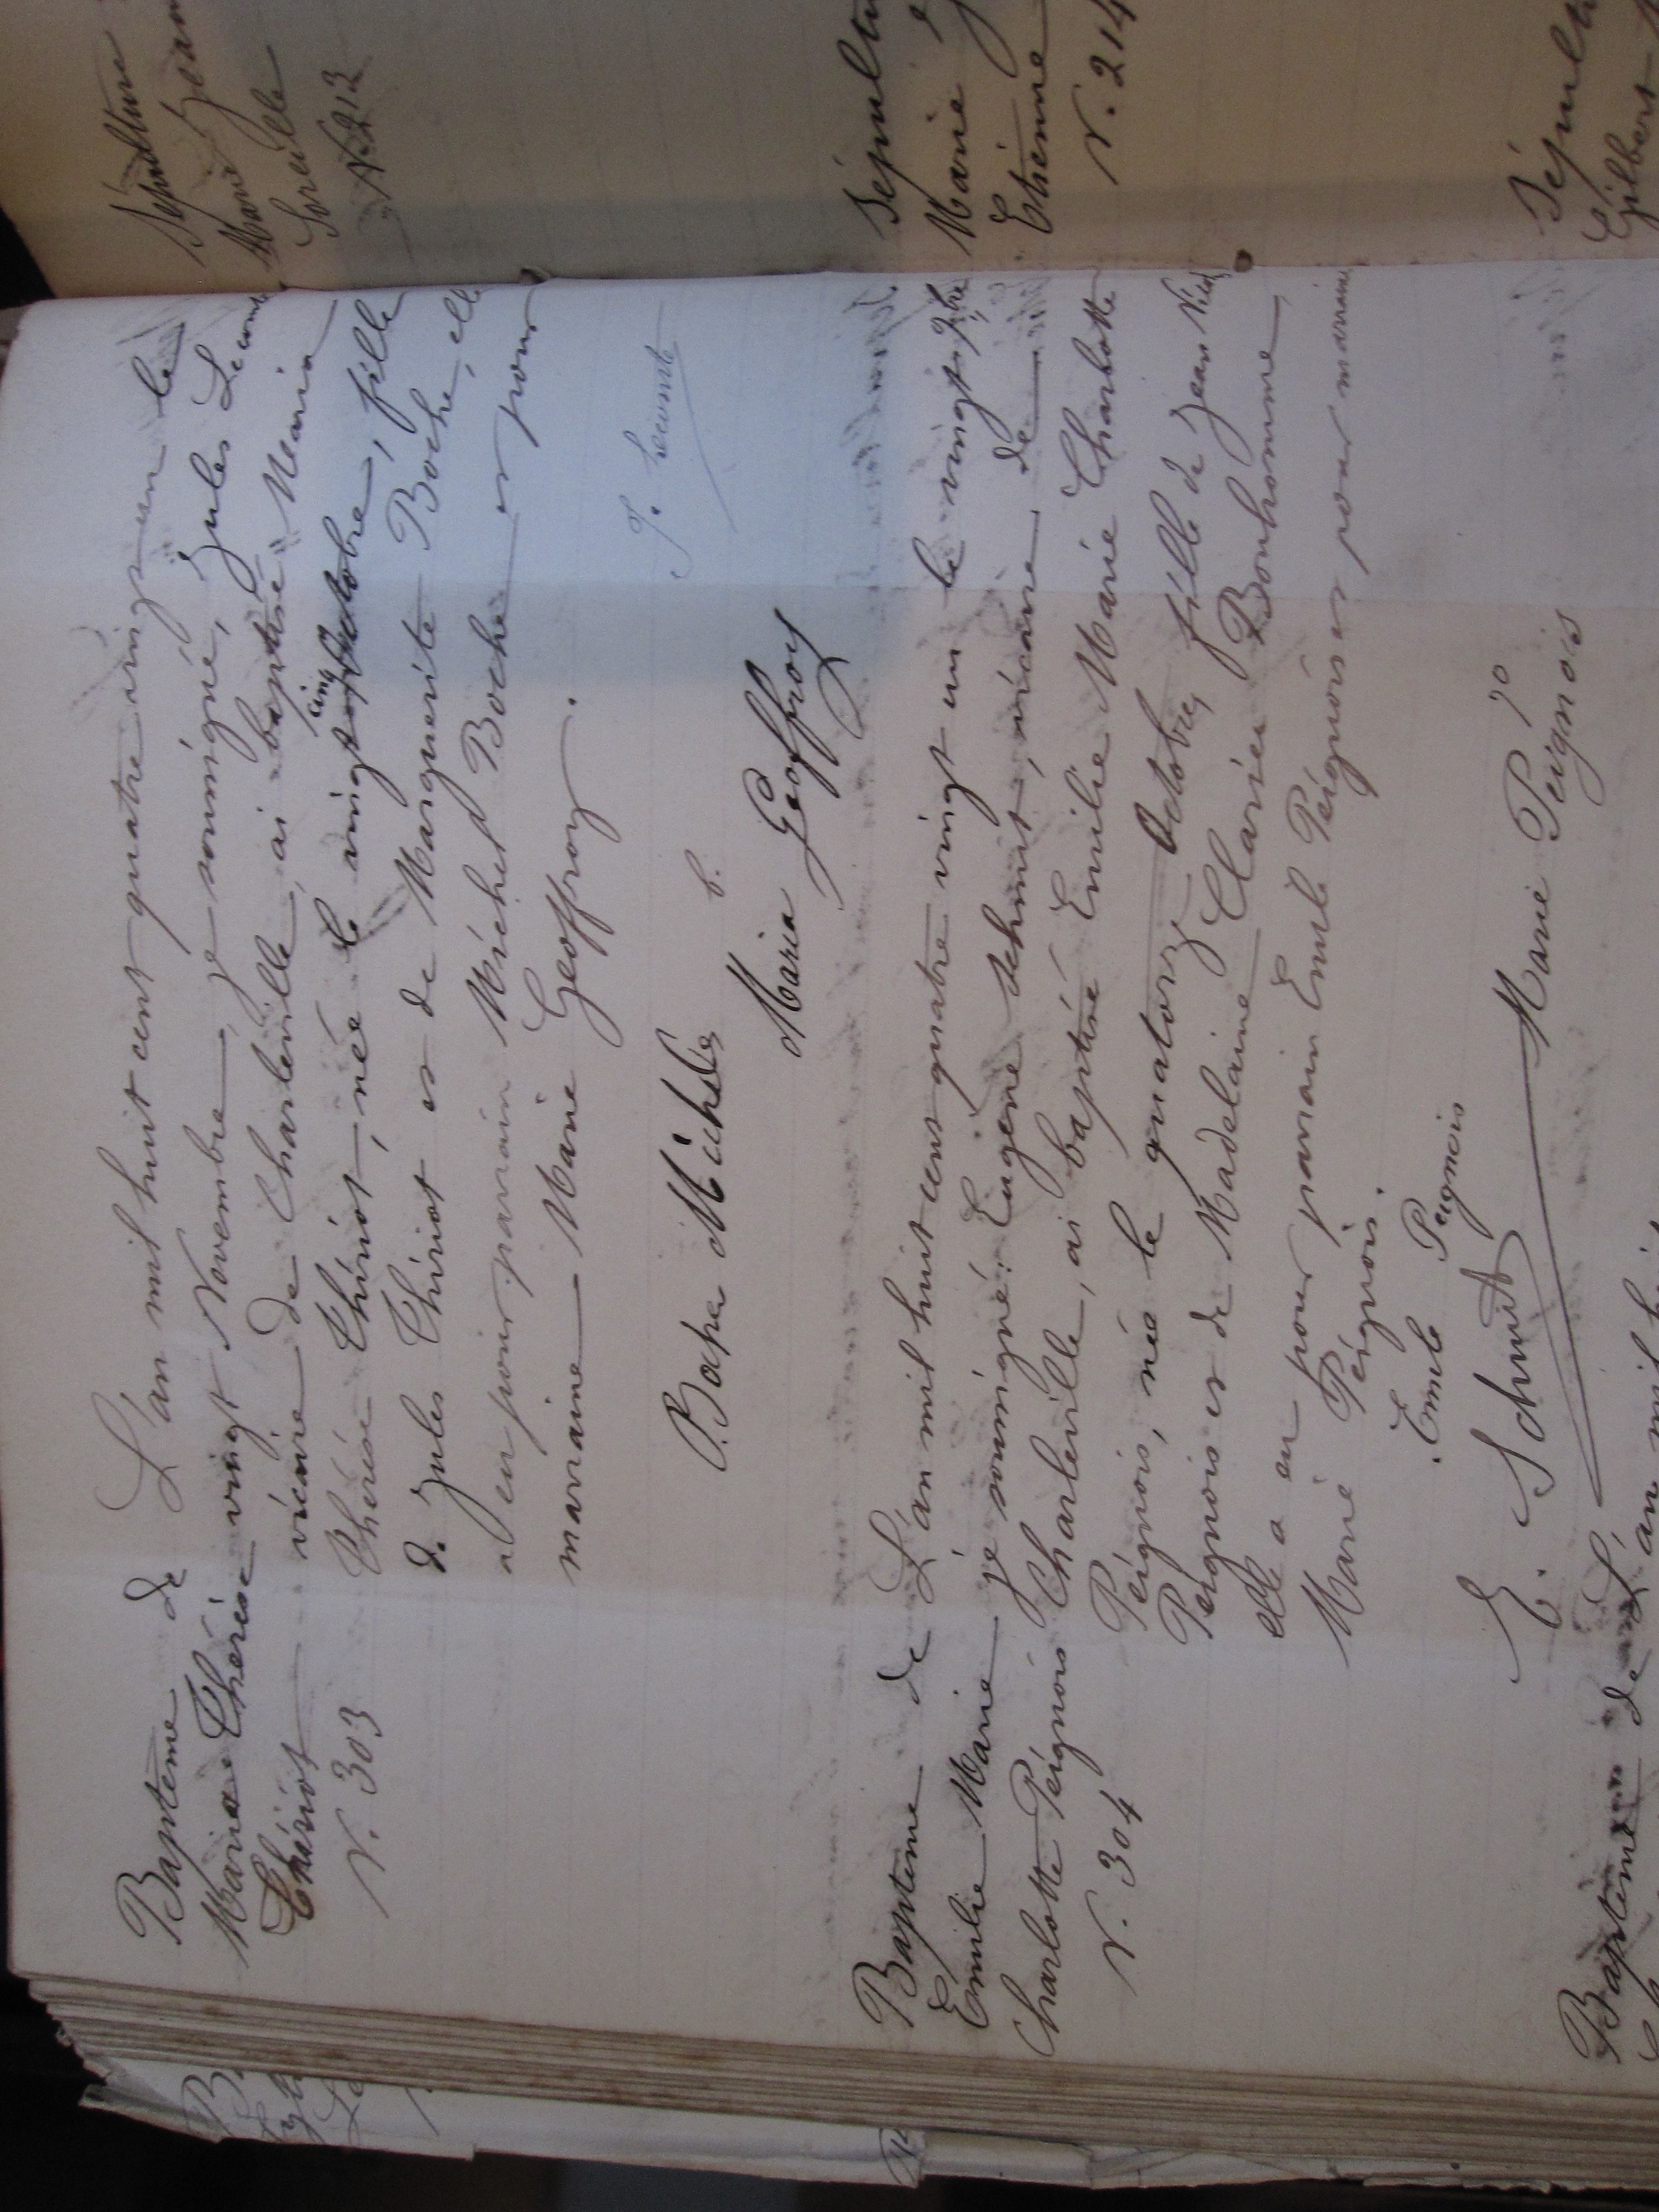 Baptême de
Maria Thérèse
Thiriot
N. 303
L'an mil huit cent quatre vingt un le
vingt Novembre, je soussigné, Jules Lecomte
vicaire de Charleville, ai baptisé Maria
Thérèse Thiriot, née le vingt cinq Octobre, fille
de Jules Thiriot et de Marguerite Boche, elle
a eu pour parrain Michel Boche et pour
marraine Marie Geoffroy.
J. Lecomte
Maria Geoffroy
Baptême de
Emilie Marie
Charlotte Peignois
N. 304
L'an mil huit cent quatre vingt un le vingt 9bre
je soussigné Eugène Schmit, vicaire de
Charleville, ai baptisé Emilie Marie Charlotte
Peignois, née le quatorze Octobre, fille de Jean
Peignois et de Madelaine Clarice Bonhomme,
elle a eu pour parrain Emile Peignois et pour marraine
Marie Peignois.
Emile Peignois
E. Schmit
Marie Peignois
Baptême de
L'an mil
Sépulture
Marie Jean
N. 213
Sépultu
Marie
Etienne
N. 214
Sépult
Gilbert